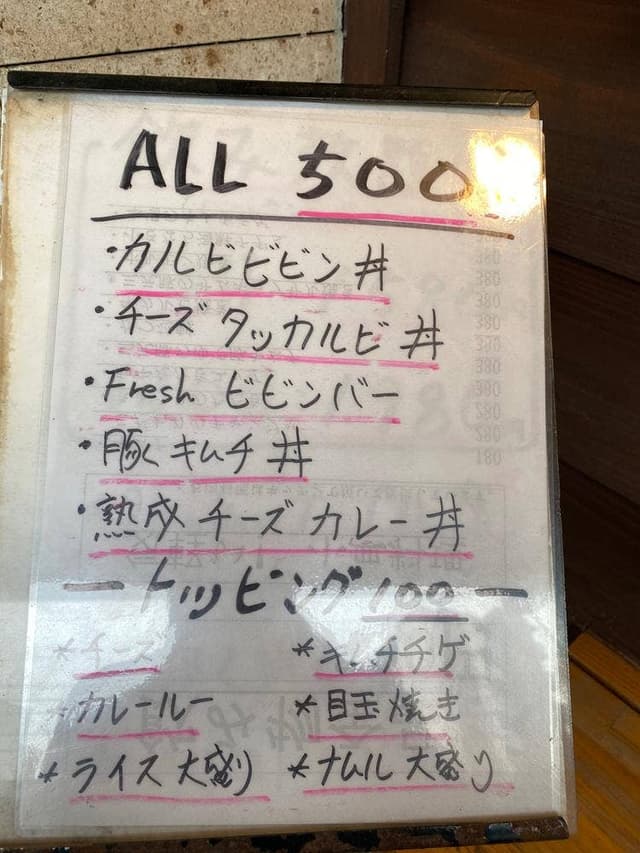 ALL 500
・カルビビビン丼
・チーズタッカルビ丼
・Fresh ビビンバー
・豚キムチ丼
・熟成チーズカレー丼
ートッピング 100ー
*チーズ *キムチチゲ
*カレールー *目玉焼き
*ライス大盛り *ナムル大盛り